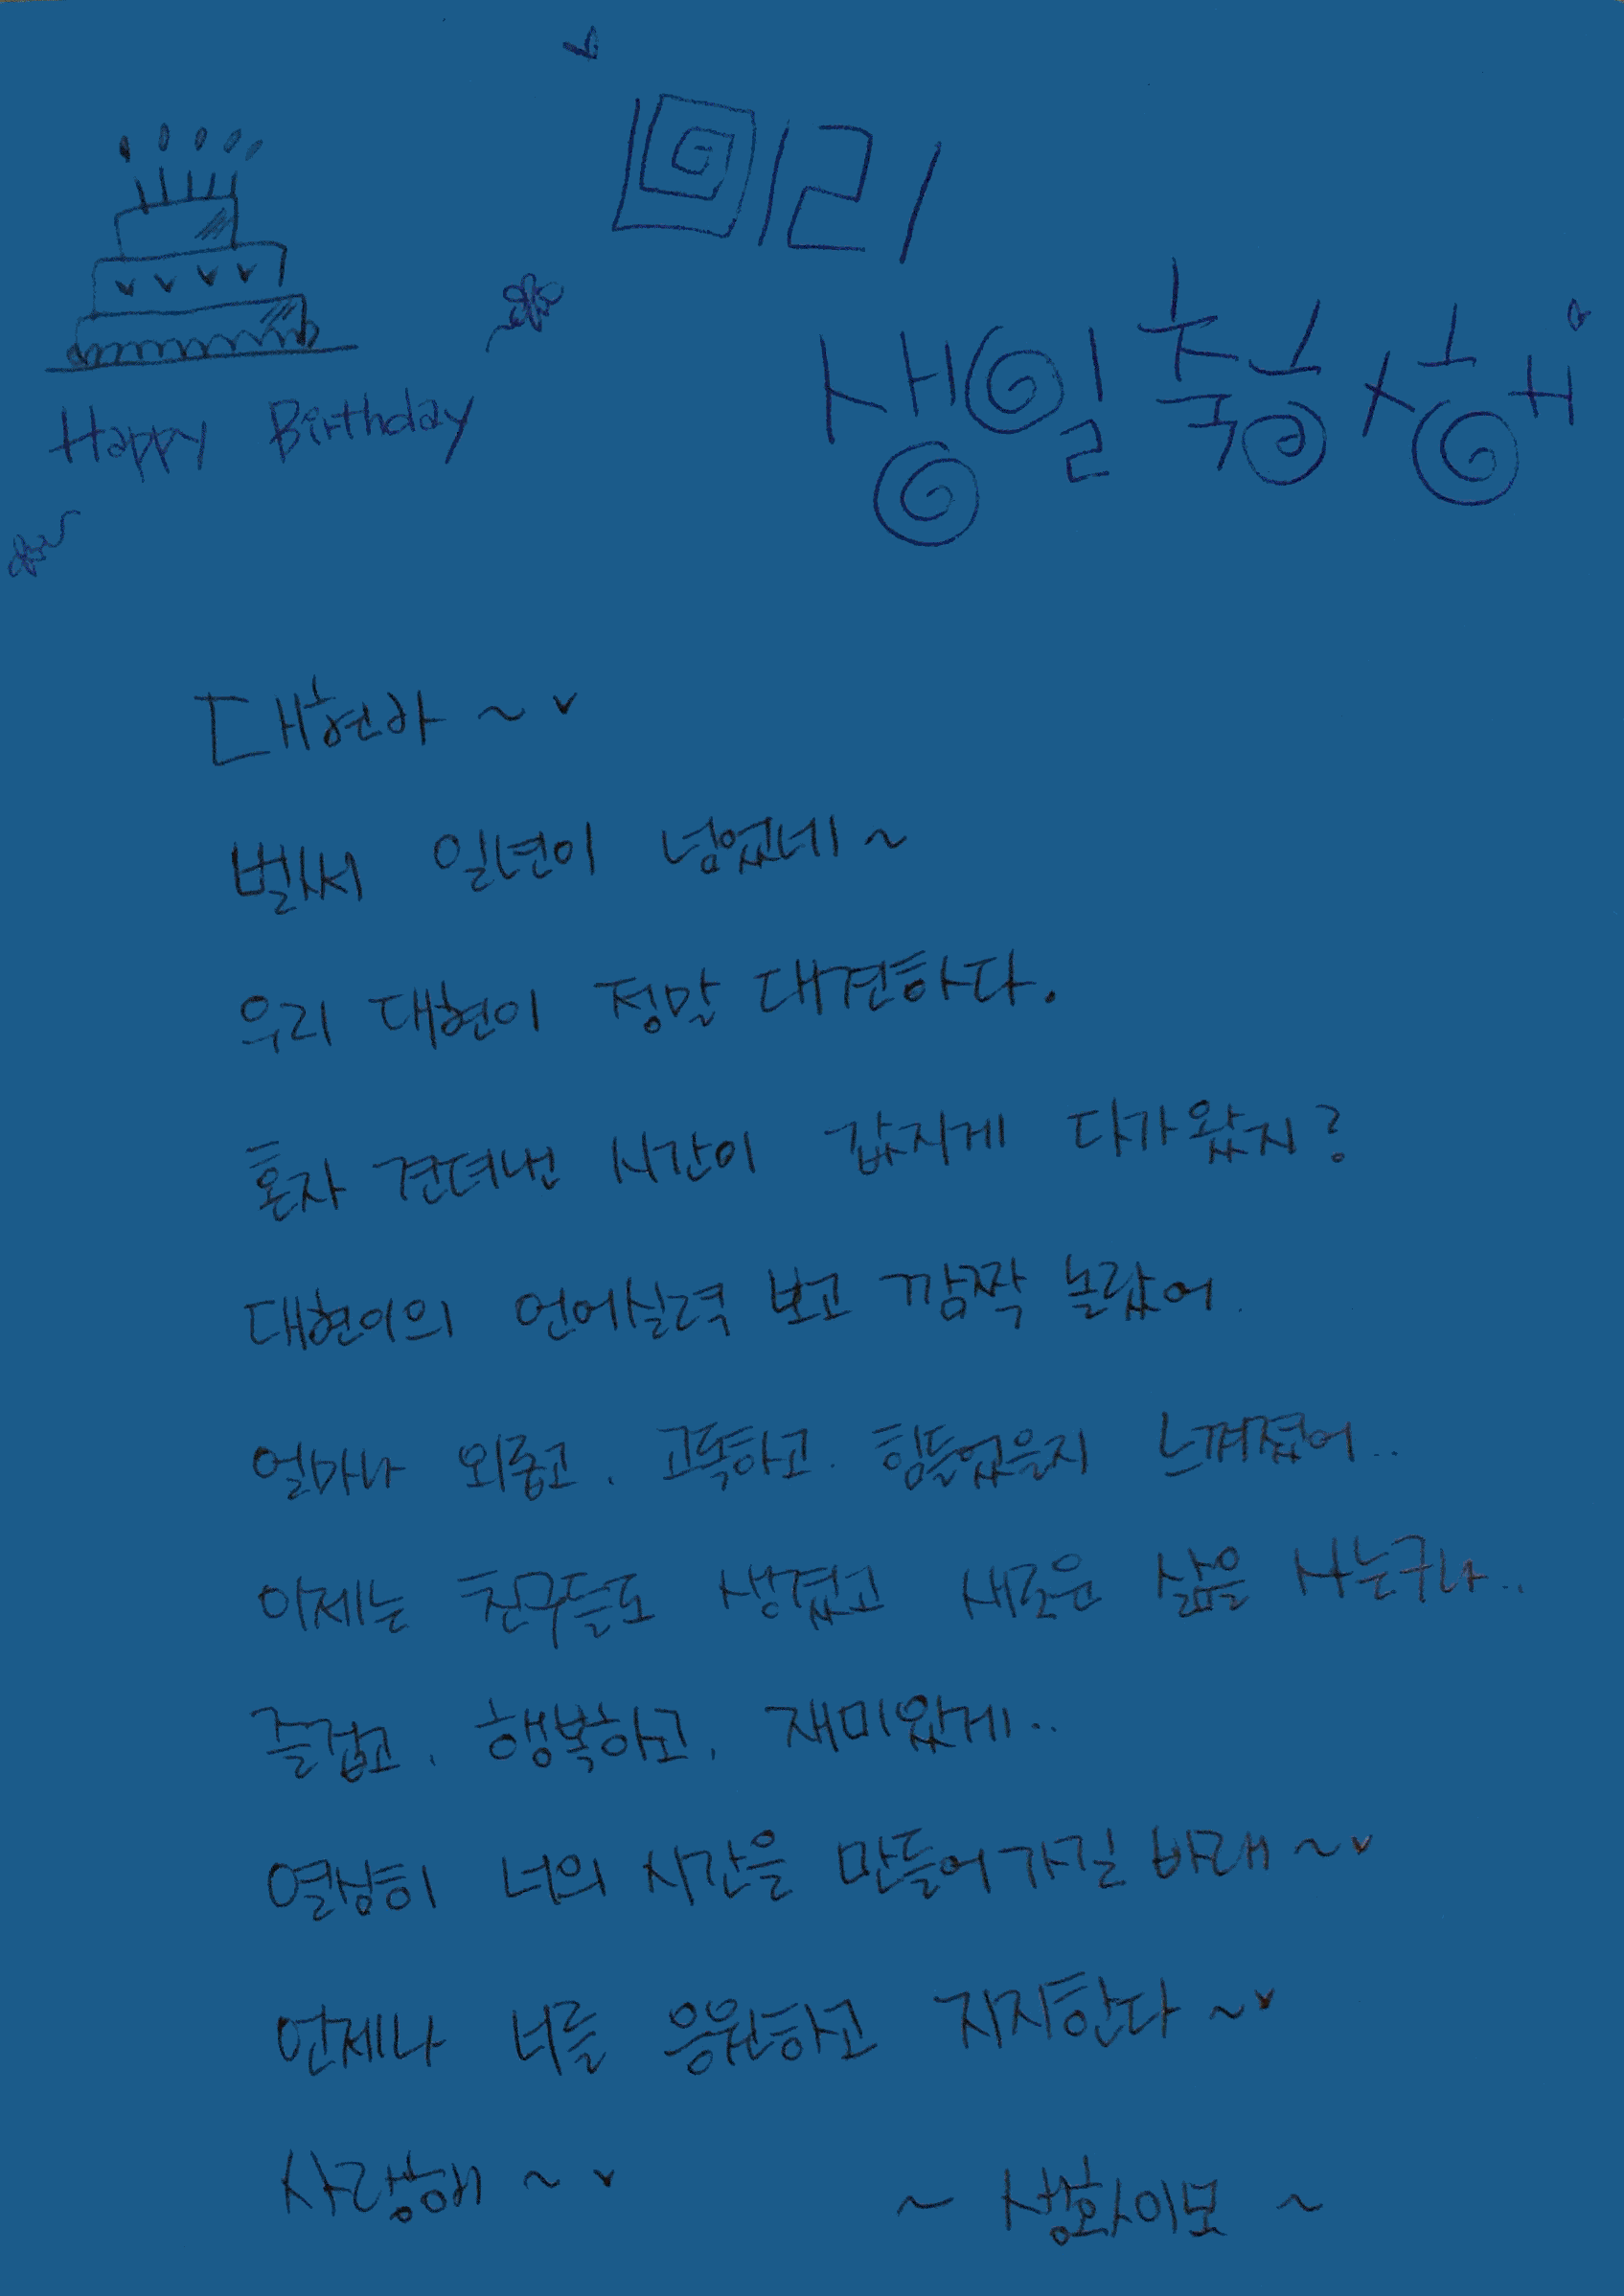 미리
생일 축하해
Happy Birthday
대현아~
벌써 일년이 넘었네~
우리 대현이 정말 대견하다.
혼자 견뎌낸 시간이 값지게 다가왔지?
대현이의 언어실력 보고 깜짝 놀랐어.
얼마나 외롭고, 고독하고, 힘들었을지 느껴졌어..
이제는 친구들도 생겼고 새로운 삶을 사는구나..
즐겁고, 행복하고, 재미있게..
열심히 너의 시간을 만들어가길 바래~
언제나 너를 응원하고 지지한다~
사랑해~
~ 성화이모 ~